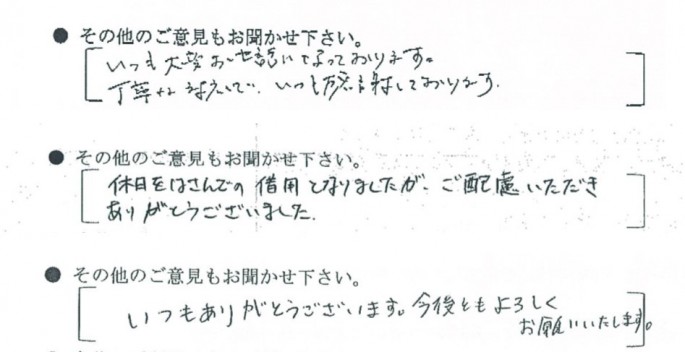 ● その他のご意見もお聞かせ下さい。
いつも大変お世話になっております。
丁寧な対応で、いつも感謝しております。
● その他のご意見もお聞かせ下さい。
休日をはさんでの借用となりましたが、ご配慮いただき
ありがとうございました。
● その他のご意見もお聞かせ下さい。
いつもありがとうございます。今後ともよろしく
お願いいたします。